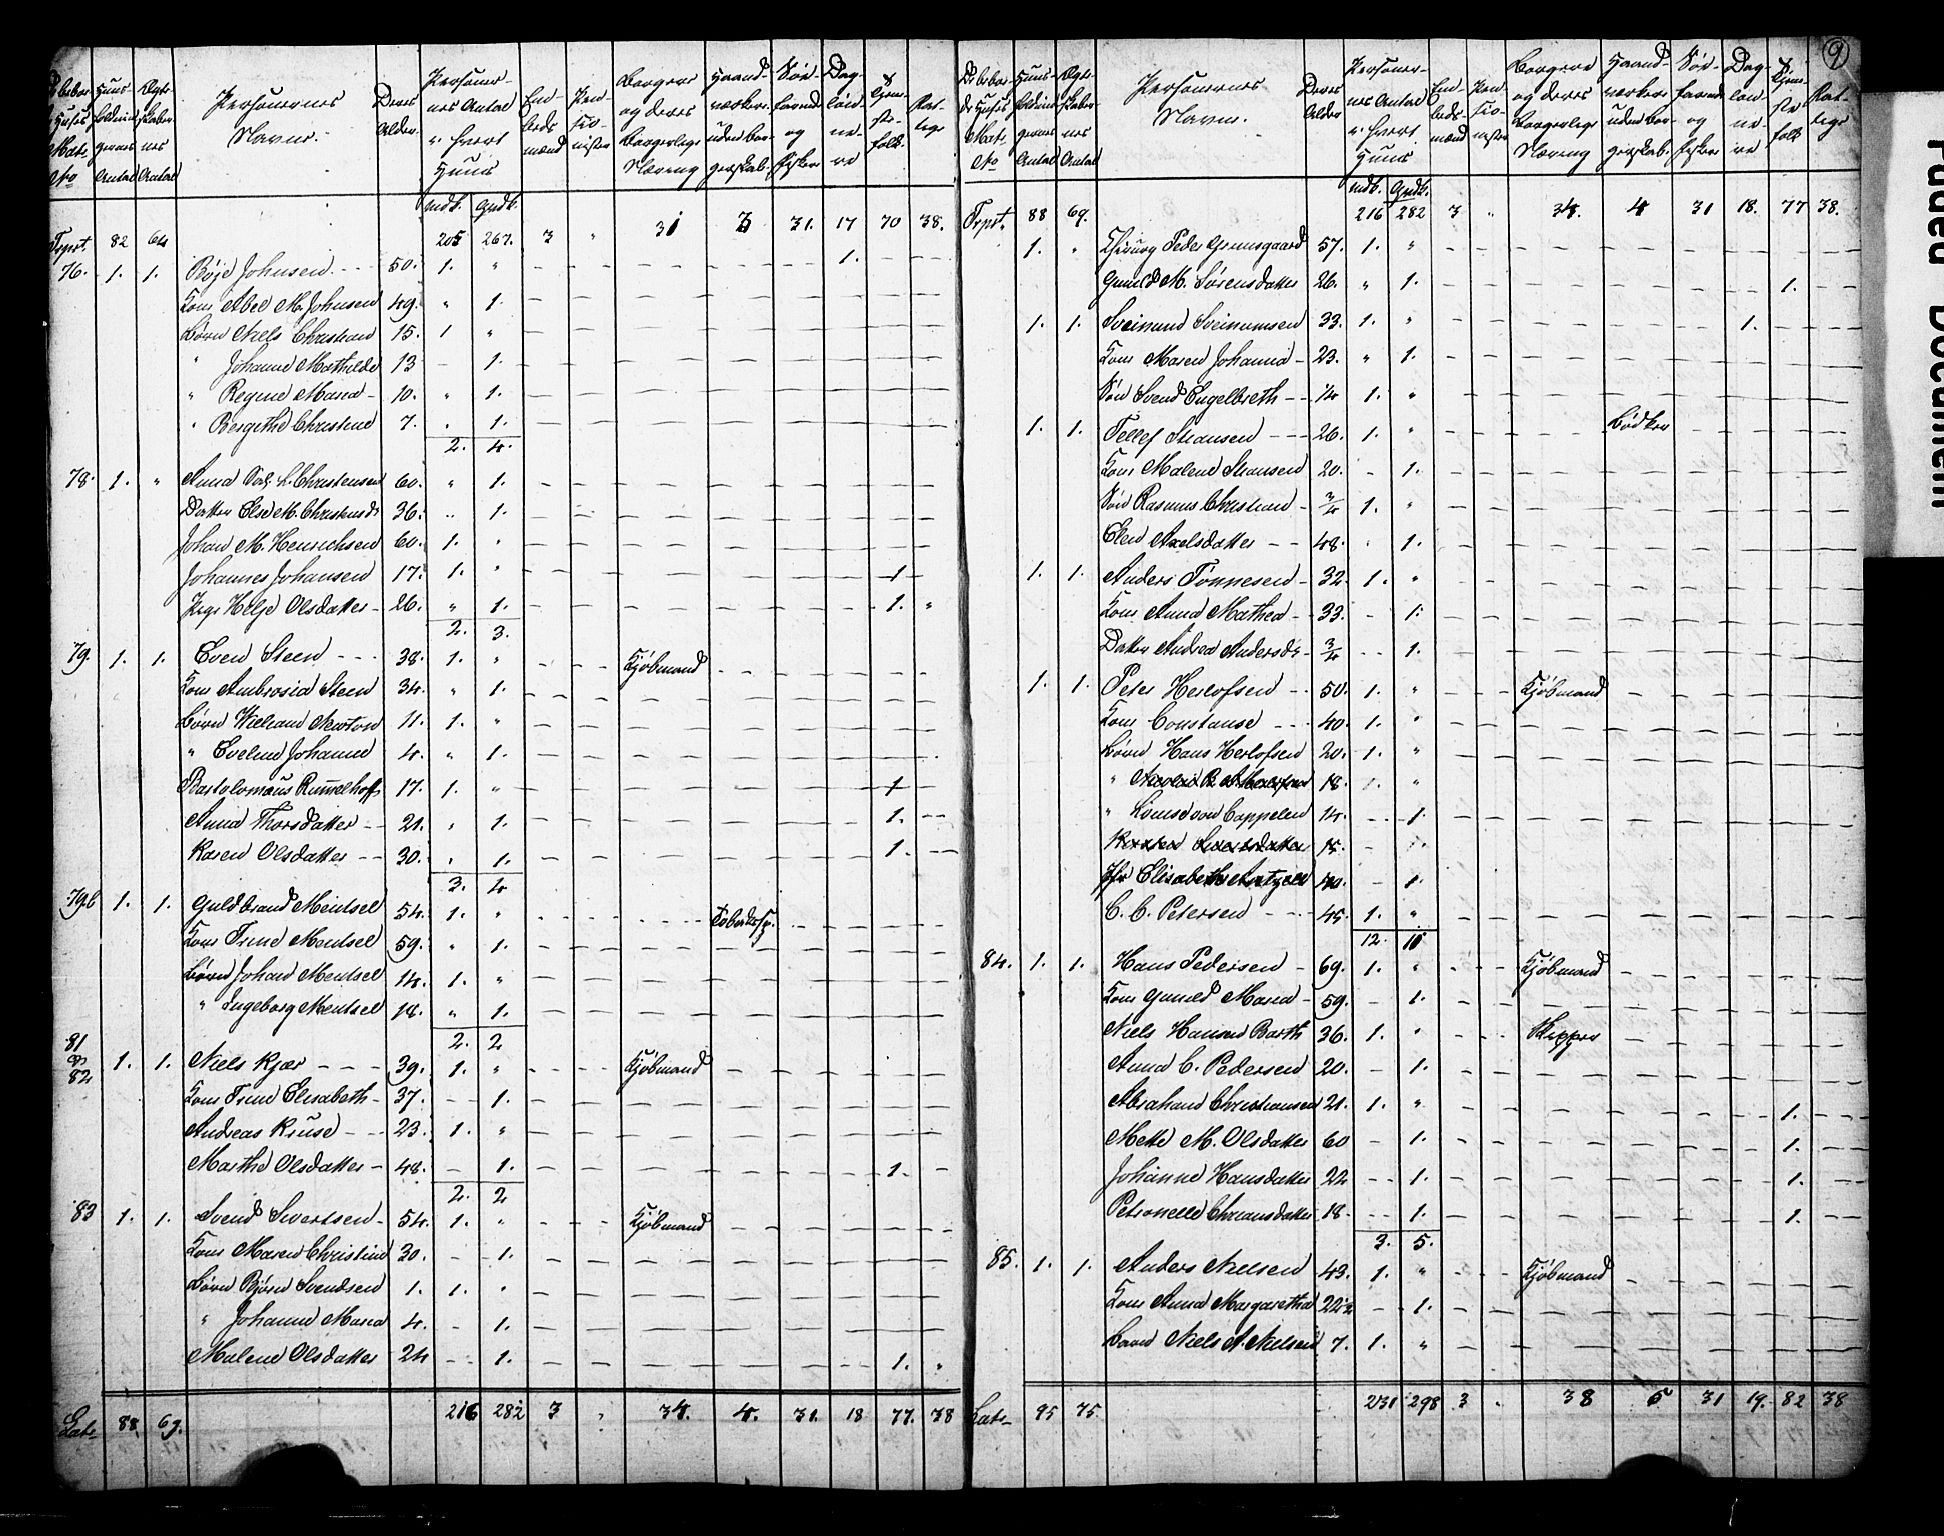 De beboe- de Huses Mat. No | Huus- holdnin- gernes Antal | Ægte- skaber- nes Antal | Personernes Navne. | Deres Alder. | Personer- nes Antal i hvert Huus | Em- beds mænd | Pen- sio- nister | Borgere og deres borgerlige Næring | Haand- værkere uden bor- gerskab. | Søe- farende og fiskere | Dag- løn- ne- re | Tjene- ste- folk. | Fat- tige
mdk. qvdk.
Trpt. 82 64 205 267. 3 " 31 3 31. 17 70 38.
76. 1. 1. Bøje Johnsen 50. 1. " 1.
Kone Abel M. Johnsen 49. " 1.
Børn Niels Christian 15. 1 "
" Johanne Mathilde 13 - 1.
" Regine Maria 10. " 1.
" Bergithe Christine 7. . 1.
2. 4.
78. 1. " Anna L. Christensen 60. " 1.
Datter Else M. Christensdr 36. " 1.
Johan M. Henrichsen 60. 1. "
Johannes Johansen 17. 1. " 1
Pige Helje Olsdatter 26. " 1. 1. "
2. 3.
79. 1. 1. Even Steen 38. 1. " Kjøbmand
Kone Ambrosia Steen 34. " 1.
Børn William Newton 11. 1. "
" Eveline Johanne 4. " 1.
Bartolomæus Rummelhoff 17. 1. " 1
Anna Thorsdatter 21. . 1. 1.
Karen Olsdatter 30. . 1. 1.
3. 4
79b 1. 1. Guldbrand Mentsel 54. 1. "
Kone Trine Mentsel 59. " 1.
Børn Johan Mentsel 14. 1. "
" Ingeborg Mentsel 18. " 1.
2. 2
81 og 82 1. 1. Niels Kjær 39. 1. " Kjøbmand
Kone Trine Elisabeth 37. - 1.
Andreas Kruse 23. 1. "
Marthe Olsdatter 48. - 1. 1.
2. 2
83 1. 1. Svend Sivertsen 54. 1. " Kjøbmand
Kone Maren Christine 30. - 1.
Børn Bjørn Svendsen 1. 1. "
" Johanne Maria 4. - 1.
Malene Olsdatter 24 - 1. 1. "
Lats 88 69. 216 282 3 " 34. 4. 31. 18 77. 38
9
De beboe- de Huses Mat. No | Huus- holdnin- gernes Antal | Ægte- skaber- nes Antal | Personernes Navne. | Deres Alder | Personer- nes Antal i hvert Huus | Em- beds- mænd | Pen- sio- nister | Borgere og deres borgerlige Næring | Haand- værkere uden bor- gerskab. | Søe- farende og fiskere | Dag- løn- ne- re | Tjene- ste folk | Fat- tige
mdk. qvdk.
Trpt. 88 69. 216 282 3 " 34. 4 31 18. 77 38.
1. " Peder Grimsgaard 57. 1. "
Gunild M. Sørensdatter 26. " 1. 1.
1. 1. Sveinund Sveinumsen 33. 1. " 1.
Kone Maren Johanna 23. " 1.
Søn Svend Engelbreth 1/4 1. "
1. 1. Tellef Stransen 26. 1. " Bødker
Kone Malene Stransen 20. - 1.
Søn Rasmus Christian 3/4 1. "
Elen Axelsdatter 48. . 1.
1. 1. Anders Tønnesen 32. 1. "
Kone Anna Mathea 33. - 1.
Datter Andrea Andersdr 3/4 - 1.
1. 1. Peter Herlofsen 50. 1. " Kjøbmand
Kone Constanse 40. 1. "
Børn Hans Herlofsen 20. 1. "
" 18. 1. "
" Lovise von Cappelen 14. - 1.
15. - 1.
Jfr Elisabeth 40. - 1.
C. C. Petersen 45. 1. "
12. 11
84. 1. 1. Hans Pedersen 69. 1. " Kjøbmand
Kone Gunild Maria 59. - 1.
Niels Hansen Barth 36. 1. " Skipper
Anna C. Pedersen 20. - 1.
Abraham Christiansen 21. 1. " 1.
Mette M. Olsdatter 60 - 1. 1.
Johanne Hansdatter 22 - 1. 1.
Petronelle Chriansdatter 18. - 1. 1.
3. 5.
85. 1. 1. Anders Nielsen 43. 1. " Kjøbmand
Kone Anna Margaretha 22½ - 1.
Barn Niels A. Nielsen 7. 1. "
Lats 95 75. 231 298 3 " 38 5 31 19. 82 38
Faded Document